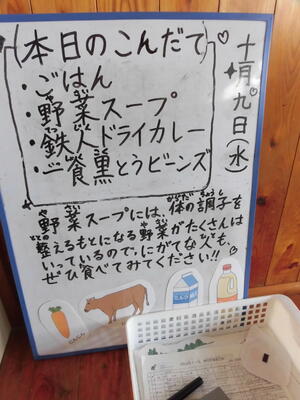 十月九日(水)
本日のこんだて
・ごはん
・野菜スープ
・鉄人ドライカレー
とうビーンズ
野菜スープには、体の調子を
整えるもとになる野菜がたくさんは
いっているので、にがてな人も、
ぜひ食べてみてください!!
にんじん
ミルク